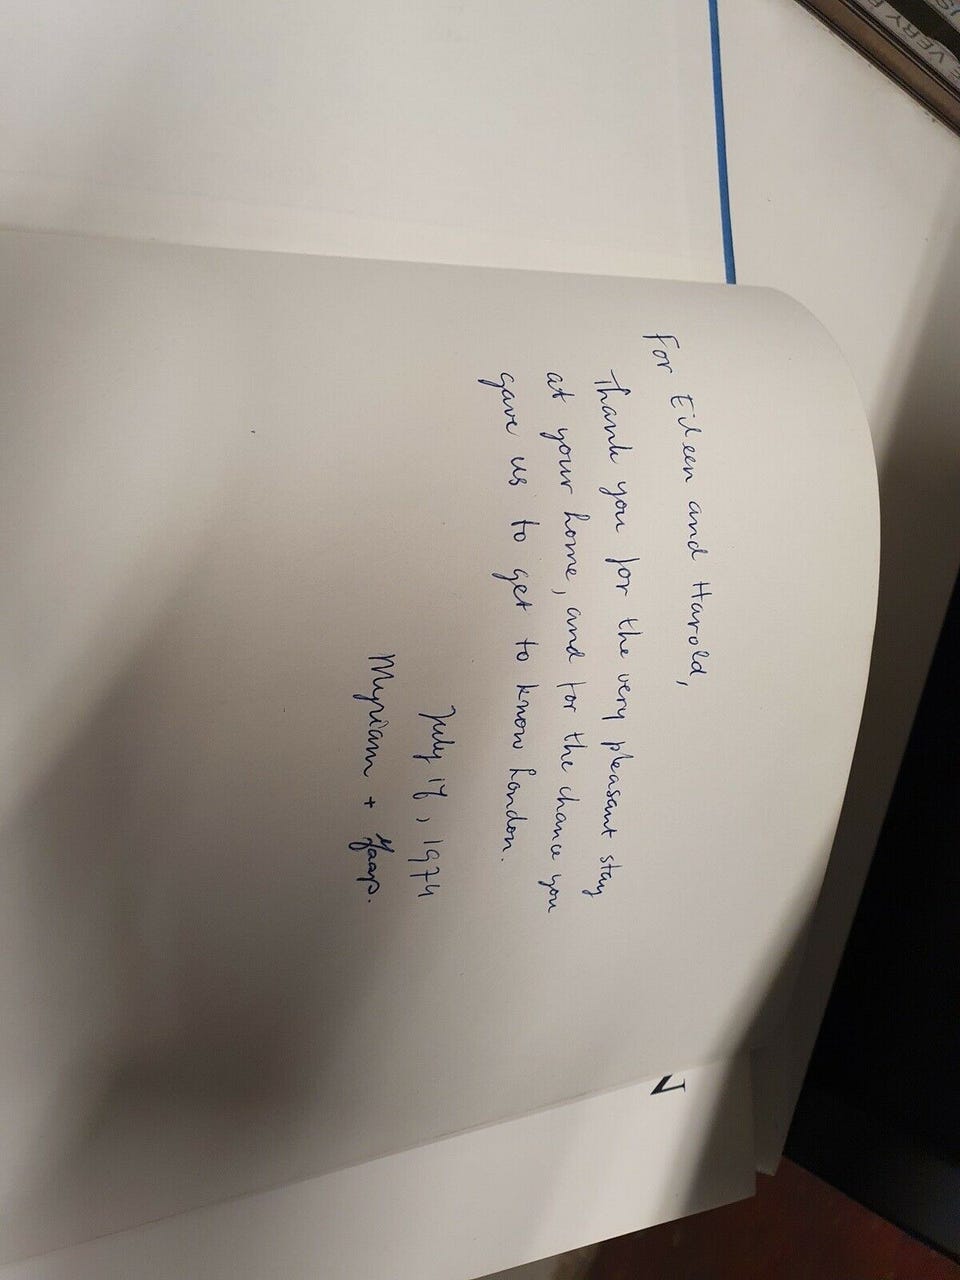 For Eileen and Harold,
Thank you for the very pleasant stay
at your home, and for the chance you
gave us to get to know London.
July 17, 1974
Myriam + Jaap.
N
VERY